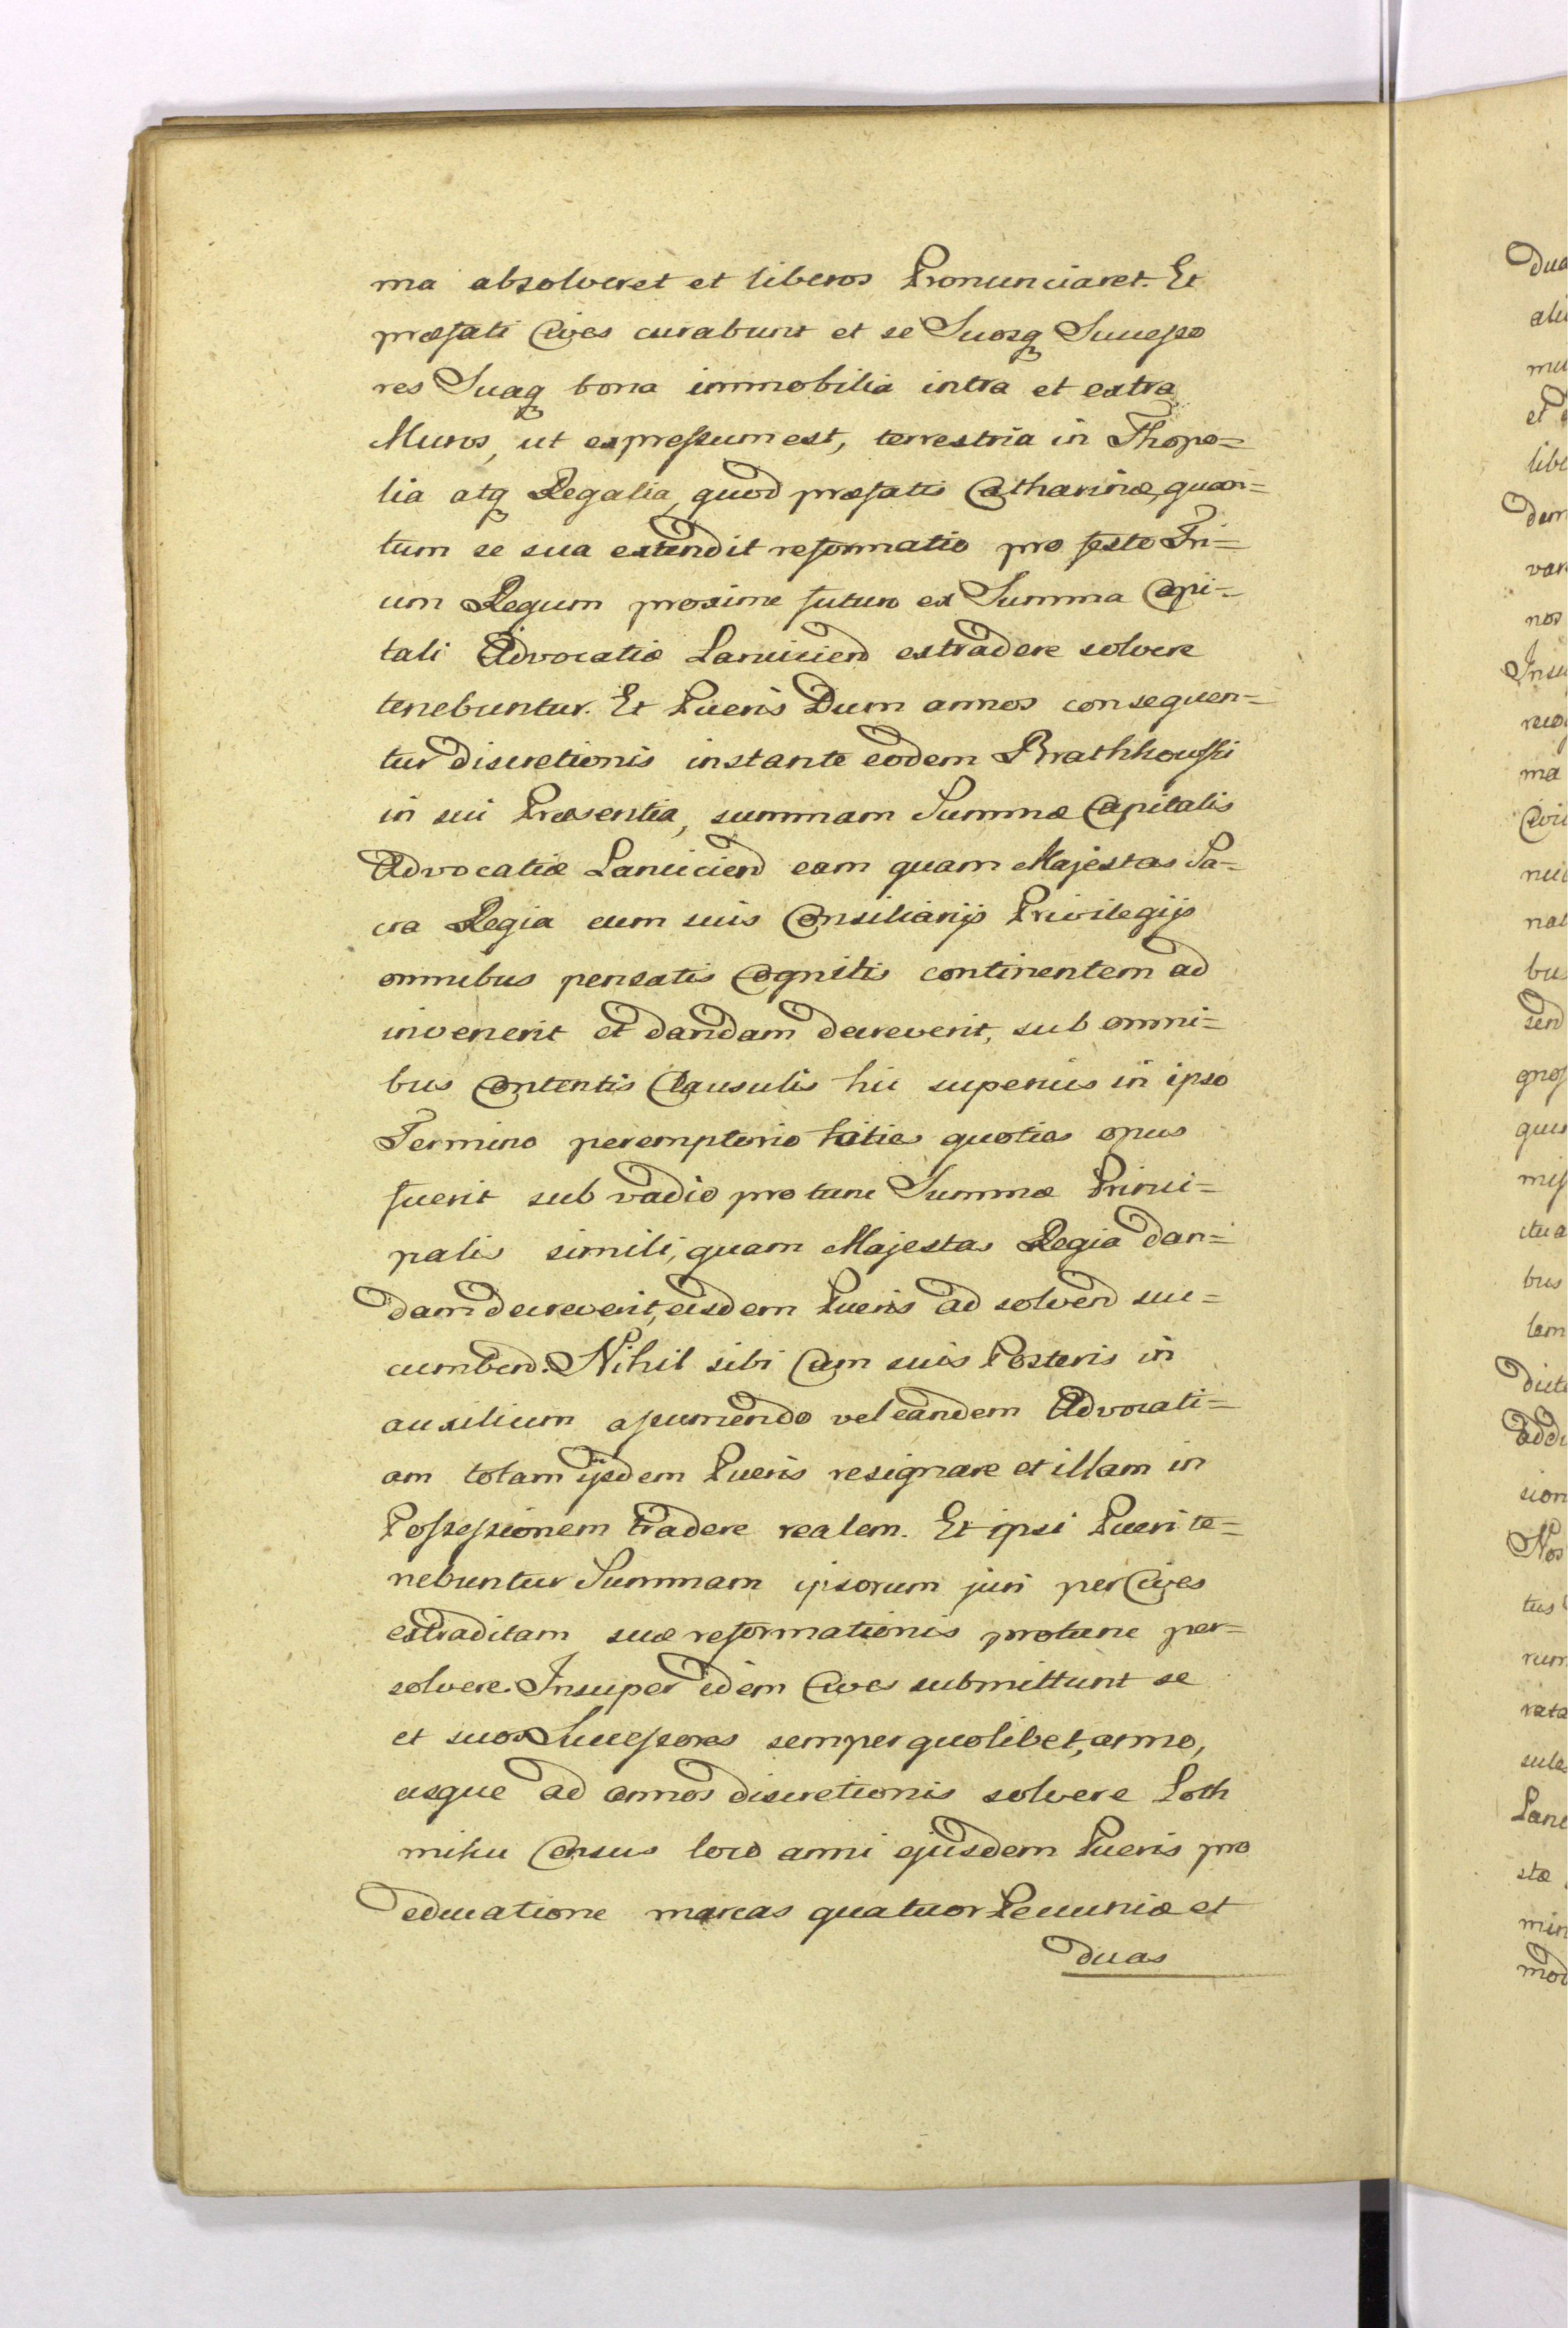 ma absolveret et liberos Pronunciaret. Et
præfati Cives curabunt et se Suosq Successo
res Suaq bona immobilia intra et extra
Muros, ut expressum est, terrestria in Thopo=
lia atq Regalia, quod præfatis Catharinæ, quan=
tum se sua extendit reformatio pro festo Tri=
um Regum proxime futuro ex Summa Capi=
tali Advocatiæ Lanciciend extradere solvere
tenebuntur. Et Pueris Dum annos consequen=
tur discretionis instante eodem Brathkousski
in sui Præsentia, summam Summæ Capitalis
Advocatiæ Lanciciend eam quam Majestas Sa=
cra Regia cum suis Consiliarijs Privilegijs
omnibus pensatis Cognitis continentem ad
invenerit et dandam decreverit, sub omni=
bus Contentis Clausulis hic superius in ipso
Termino peremptorio toties quoties opus
fuerit sub vadio pro tunc Summæ Princi=
palis simili, quam Majestas Regia dan=
dam decreverit, eisdem Pueris ad solvend suc=
cumbend. Nihil sibi Cum suis Posteris in
auxilium assumendo vel eandem Advocati=
am totam ijsdem Pueris resignare et illam in
Possessionem tradere realem. Et ipsi Pueri te=
nebuntur Summam ipsorum juri per Cives
extraditam suæ reformationis protunc per=
solvere. Insuper idem Cives submittunt se
et suos Successores semper quolibet, anno,
usque ad annos discretionis solvere Loth
Census loco anni ejusdem Pueris pro
educatione marcas quatuor Pecuniæ et
duas